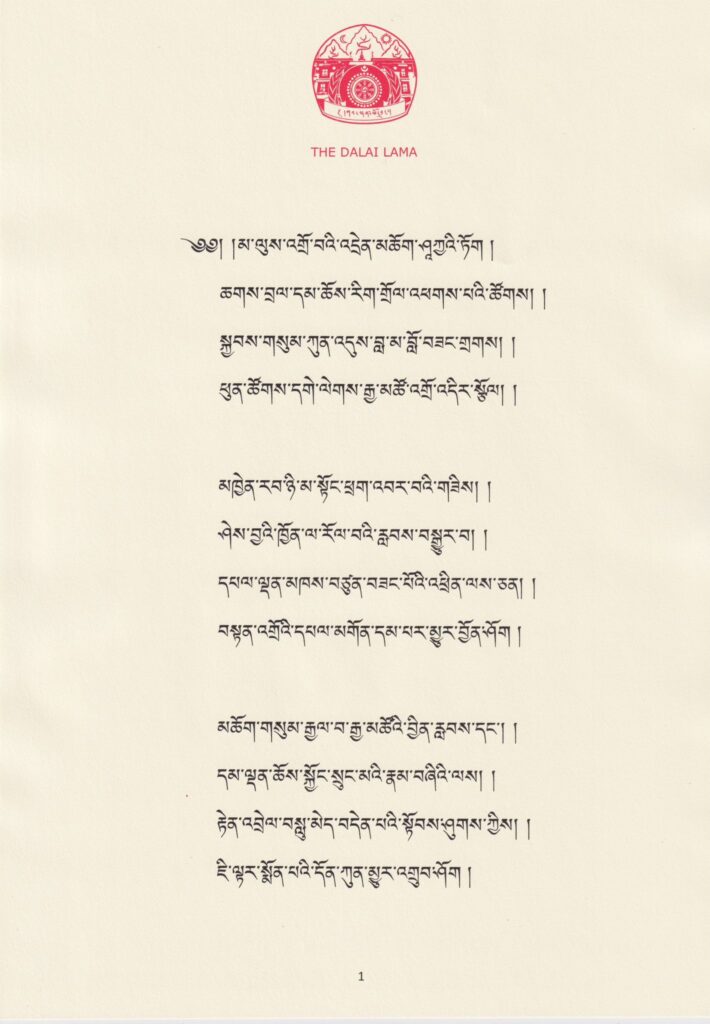 THE DALAI LAMA
༄༅། །མ་ལུས་འགྲོ་བའི་འདྲེན་མཆོག་ཤཱཀྱའི་ཏོག །
ཆགས་བྲལ་དམ་ཆོས་རིག་གྲོལ་འཕགས་པའི་ཚོགས། །
སྐྱབས་གསུམ་ཀུན་འདུས་བླ་མ་བློ་བཟང་གྲགས། །
ཕུན་ཚོགས་དགེ་ལེགས་རྒྱ་མཚོ་འགྲོ་འདིར་སྩོལ། །
མཁྱེན་རབ་ཉི་མ་སྟོང་ཕྲག་འབར་བའི་གཟིས། །
ཤེས་བྱའི་ཁྱོན་ལ་རོལ་བའི་རླབས་བསྒྱུར་བ། །
དཔལ་ལྡན་མཁས་བཙུན་བཟང་པོའི་འཕྲིན་ལས་ཅན། །
བསྟན་འགྲོའི་དཔལ་མགོན་དམ་པར་མྱུར་བྱོན་ཤོག །
མཆོག་གསུམ་རྒྱལ་བ་རྒྱ་མཚོའི་བྱིན་རླབས་དང་། །
དམ་ལྡན་ཆོས་སྐྱོང་སྲུང་མའི་རྣམ་བཞིའི་ལས། །
རྟེན་འབྲེལ་བསླུ་མེད་བདེན་པའི་སྟོབས་ཤུགས་ཀྱིས། །
ཇི་ལྟར་སྨོན་པའི་དོན་ཀུན་མྱུར་འགྲུབ་ཤོག །
1